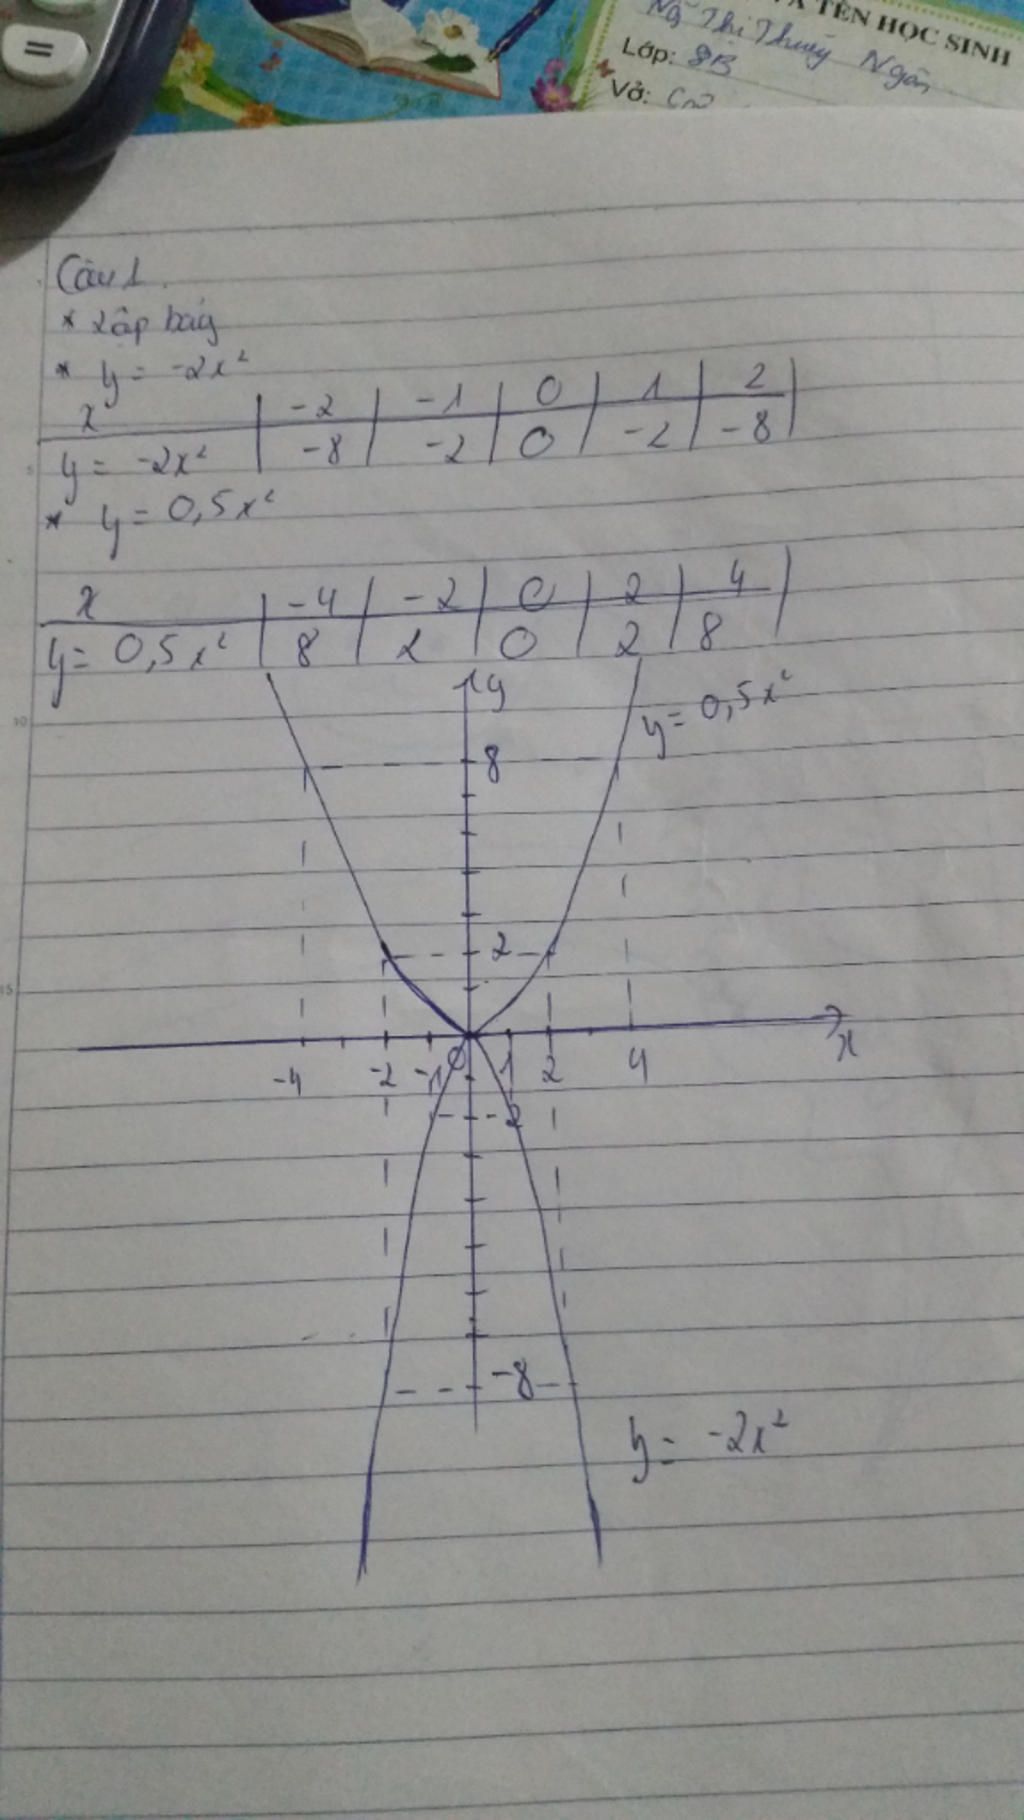 =
VÀ TÊN HỌC SINH
Ng Thị Thuý Ngân
Lớp: 8B
Vở:
Câu 1
* Lập bảg
* y = -2x²
x | -2 | -1 | 0 | 1 | 2 |
y = -2x² | -8 | -2 | 0 | -2 | -8 |
* y = 0,5x²
x | -4 | -2 | 0 | 2 | 4 |
y = 0,5x² | 8 | 2 | 0 | 2 | 8
y
y = 0,5x²
8
2
x
-4 -2 -1 0 1 2 4
-2
-8
y = -2x²